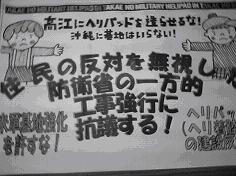 TAKAE NO MILITARY HELIPAD!!
高江にヘリパッドを造らせるな!
沖縄に基地はいらない!
住民の反対を無視した
防衛省の一方的
工事強行に
抗議する!
米軍基地強化
を許すな!
ヘリパッ
(ヘリ着
の建設